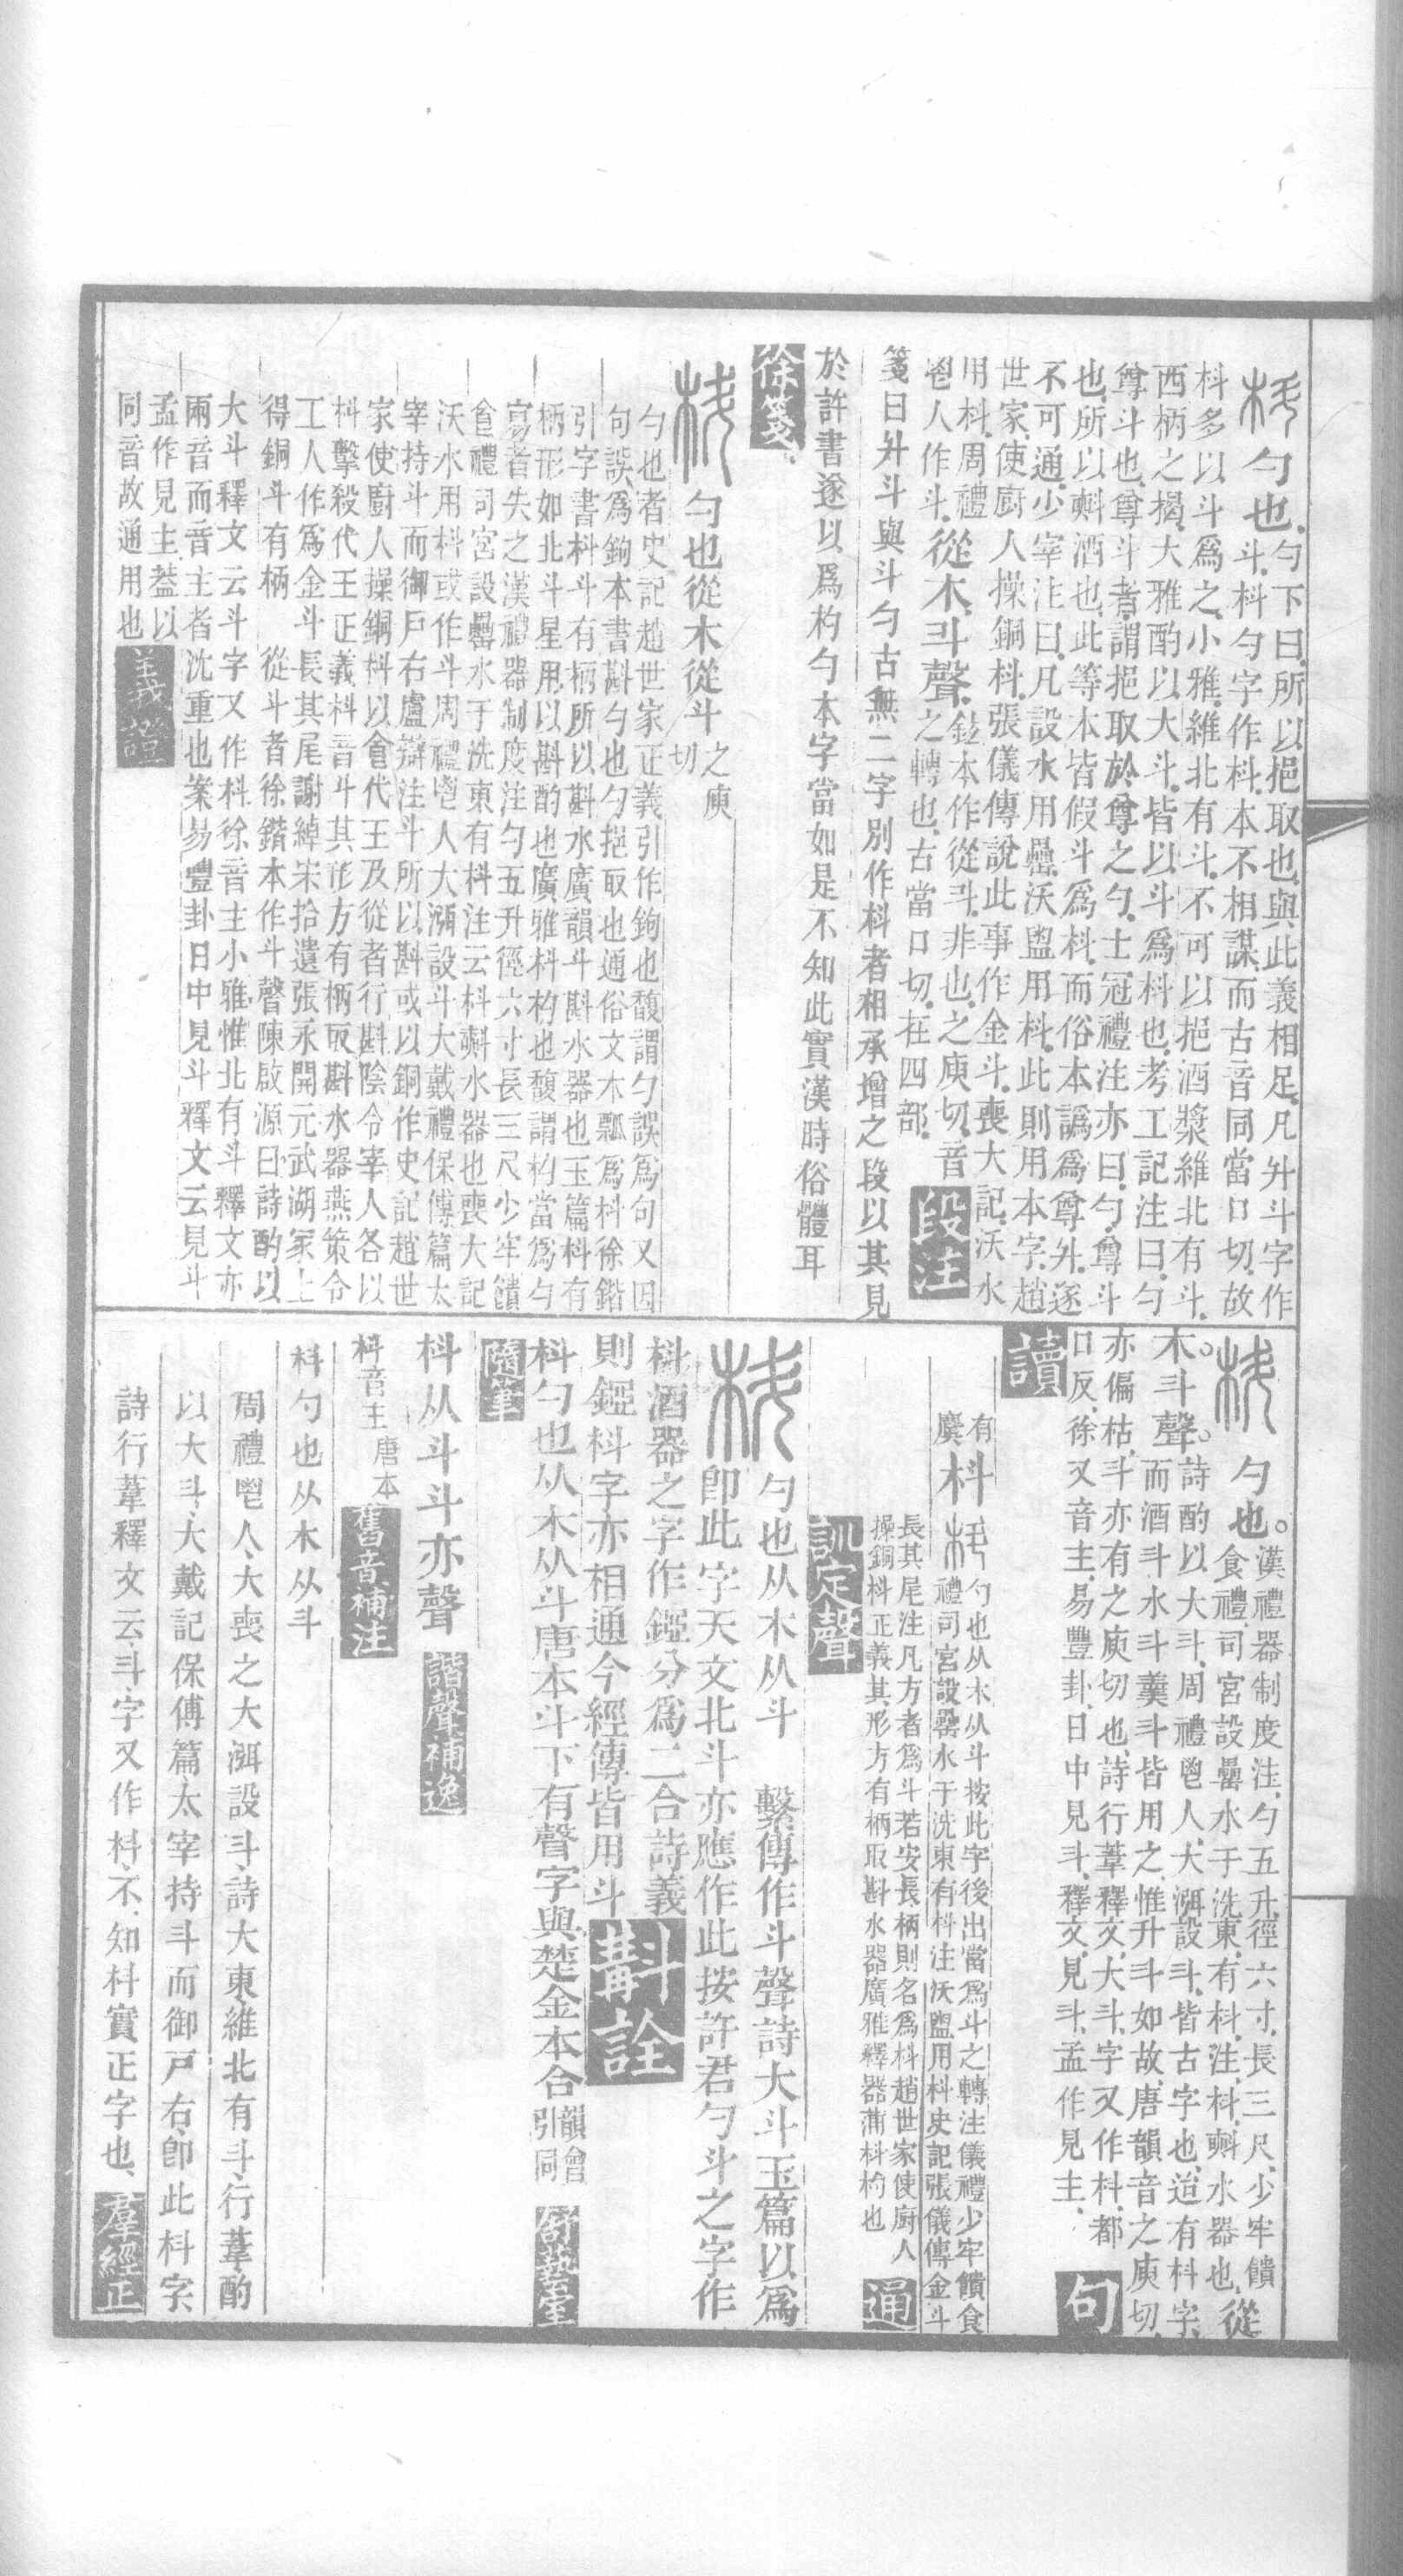 枓勺也勺下曰所以挹取也與此義相足凡升斗字作
斗枓勺字作枓本不相謀而古音同當口切故
枓多以斗爲之小雅維北有斗不可以挹酒漿維北有斗
西柄之揭大雅酌以大斗皆以斗爲枓也考工記注曰勺
尊斗也尊斗者謂挹取於尊之勺士冠禮注亦曰勺尊斗
也所以㪺酒也此等本皆假斗爲枓而俗本譌爲尊升遂
不可通少宰注曰凡設水用罍沃盥用枓此則用本字趙
世家使厨人操銅枓張儀傳說此事作金斗喪大記沃水
用枓周禮
鬯人作斗從木斗聲鉉本作從斗非也之庾切音
之轉也古當口切在四部段注
箋曰升斗與斗勺古無二字別作枓者相承增之段以其見
於許書遂以爲枓勺本字當如是不知此實漢時俗體耳
徐箋
枓勺也從木從斗之庾切
勺也者史記趙世家正義引作鉤也馥謂勺誤爲句又因
句誤爲鉤本書㪺勺也勺挹取也通俗文木瓢爲枓徐鍇
引字書枓斗有柄所以㪺水廣韻斗㪺水器也玉篇枓有
柄形如北斗星用以㪺酌也廣雅枓杓也馥謂杓當爲勺
寫者失之漢禮器制度注勺五升徑六寸長三尺少牢饋
食禮司宮設罍水于洗東有枓注云枓㪺水器也喪大記
沃水用枓或作斗周禮鬯人大渳設斗大戴禮保傅篇太
宰持斗而御戶右盧辯注斗所以㪺或以銅作史記趙世
家使廚人操銅枓以食代王及從者行斟陰令宰人各以
枓擊殺代王正義枓音斗其形方有柄取㪺水器燕策令
工人作爲金斗長其尾謝綽宋拾遺張永開元武湖冢上
得銅斗有柄　從斗者徐鍇本作斗聲陳啟源曰詩酌以
大斗釋文云斗字又作枓徐音主小雅惟北有斗釋文亦
兩音而音主者沈重也案易豐卦日中見斗釋文云見斗
孟作見主蓋以
同音故通用也義證
枓勺也。漢禮器制度注勺五升徑六寸長三尺少牢饋
食禮司宮設罍水于洗東有枓注枓㪺水器也從
木。斗聲。詩酌以大斗周禮鬯人大渳設斗皆古字也迨有枓字
而酒斗水斗羹斗皆用之惟升斗如故唐韻音之庾切
亦偏枯斗亦有之庾切也詩行葦釋文大斗字又作枓都
口反徐又音主易豐卦日中見斗釋文見斗孟作見主句
讀
有麌枓枓勺也从木从斗按此字後出當爲斗之轉注儀禮少牢饋食
禮司宮設罍水于洗東有枓注沃盥用枓史記張儀傳金斗
長其尾注凡方者爲斗若安長柄則名爲枓趙世家使厨人
操銅枓正義其形方有柄取㪺水器廣雅釋器蒲枓杓也通
訓定聲
枓勺也从木从斗　繫傳作斗聲詩大斗玉篇以爲
卽此字天文北斗亦應作此按許君勺斗之字作
枓酒器之字作䥐分爲二合詩義
則䥐枓字亦相通今經傳皆用斗斠詮
枓勺也从木从斗唐本斗下有聲字與楚金本合韻會引同舒蓺室
隨筆
枓从斗斗亦聲諧聲補逸
枓音主唐本舊音補注
枓勺也从木从斗
周禮鬯人大喪之大渳設斗詩大東維北有斗行葦酌
以大斗大戴記保傅篇太宰持斗而御戸右卽此枓字
詩行葦釋文云斗字又作枓不知枓實正字也羣經正